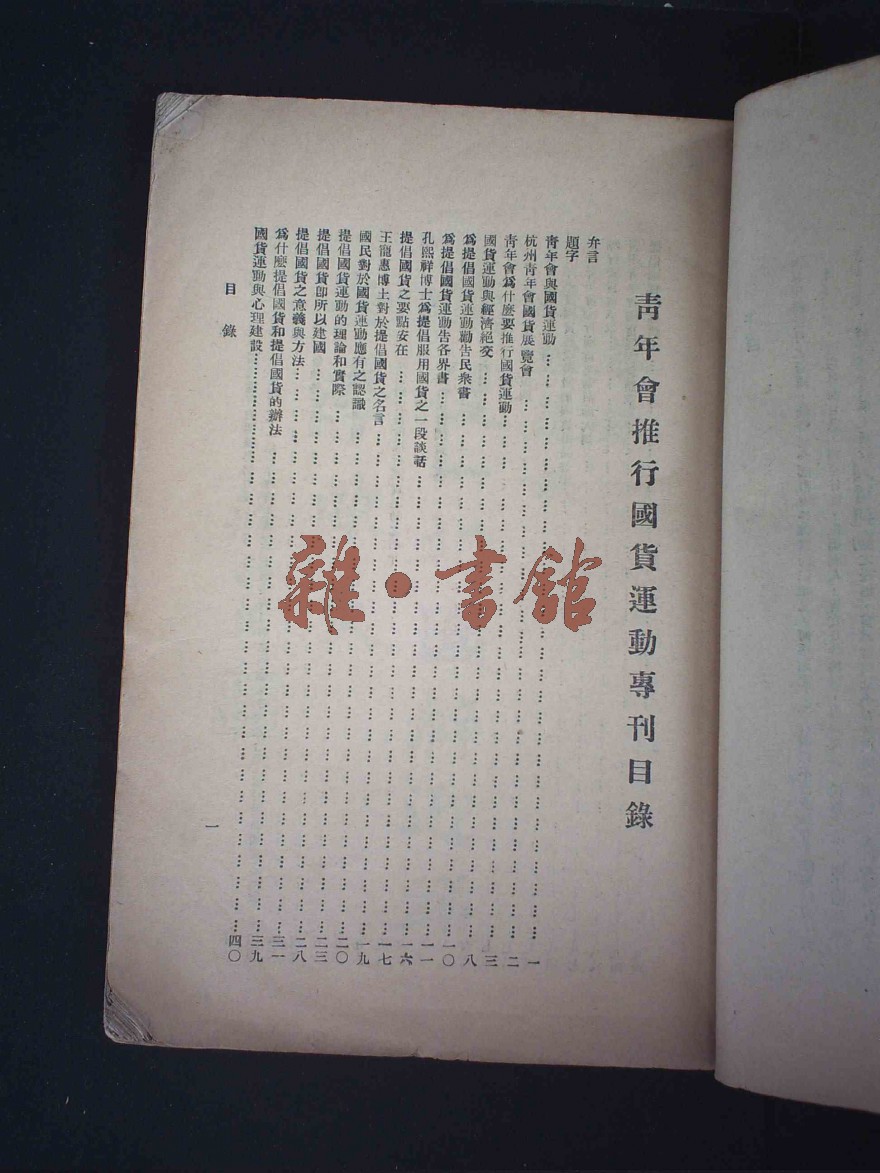 青年會推行國貨運動專刊目錄
弁言
題字
青年會與國貨運動……一
杭州青年會國貨展覽會……二
青年會爲什麽要推行國貨運動……三
國貨運動與經濟絕交……八
爲提倡國貨運動勸告民衆書……一〇
爲提倡國貨運動告各界書……一一
孔熙祥博士爲提倡服用國貨之一段談話……一六
提倡國貨之要點安在……一七
王寵惠博士對於提倡國貨之名言……一九
國民對於國貨運動應有之認識……二〇
提倡國貨運動的理論和實際……二三
提倡國貨卽所以建國……二八
提倡國貨之意義與方法……三一
爲什麽提倡國貨和提倡國貨的辦法……三九
國貨運動與心理建設……四〇
目錄
一
雜·書館